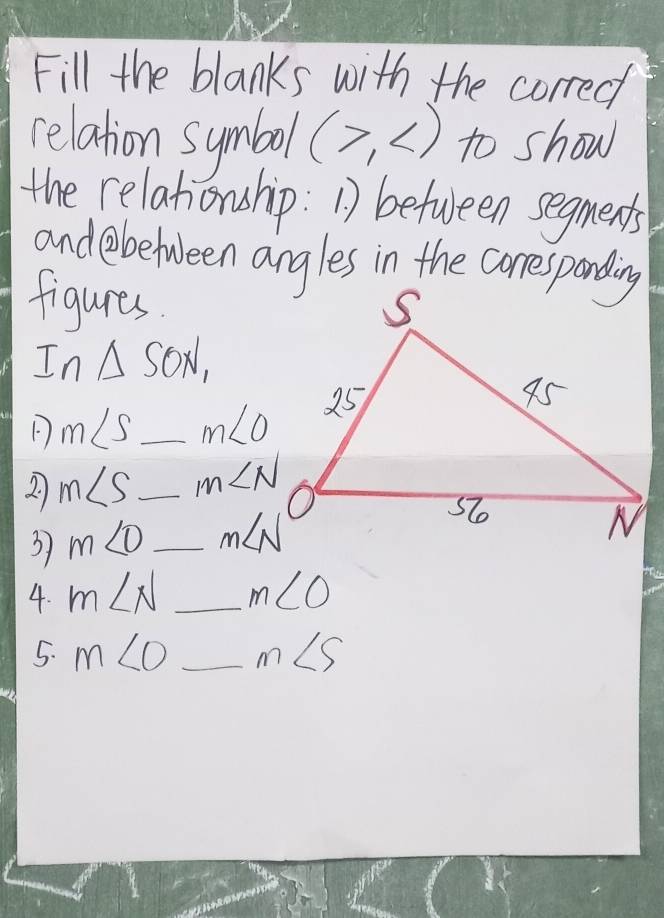 Fill the blanks with the correct
relation symbol (>, <) to show
the relationship: 1.) between segments
and ② between angles in the corresponding
figures.
S
In △ SON,
25
45
1.) m∠S __ m∠O
2.) m∠S __ m∠N
O
56
N
3) m∠O __ m∠N
4. m∠N ___ m∠O
5. m∠O ___ m∠S